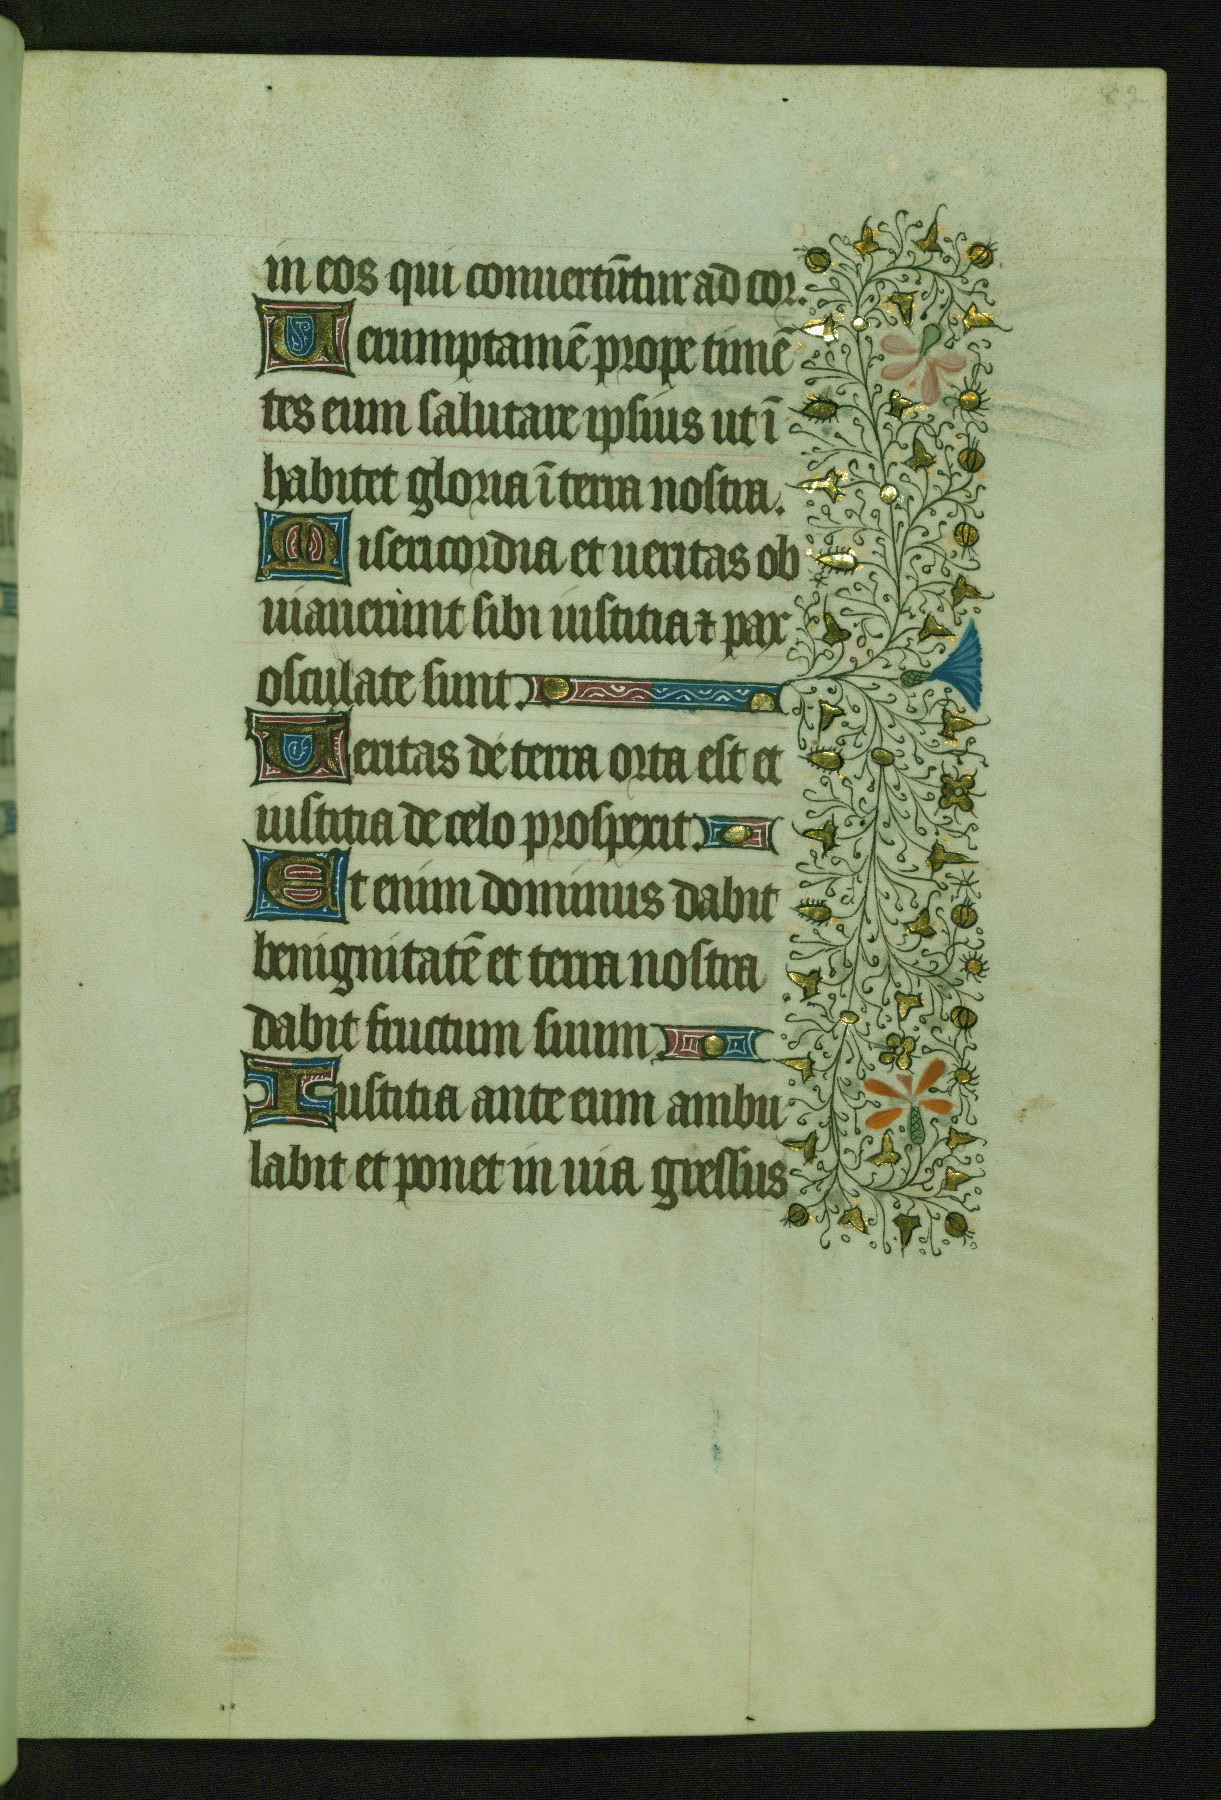 82
in eos qui conuertūtur ad cor.
Uerumptamē prope timē
tes eum salutare ipsius ut ī
habitet gloria ī terra nostra.
Misericordia et ueritas ob
uiauerunt sibi iustitia ⁊ pax
osculate sunt.
Ueritas de terra orta est et
iustitia de celo prospexit.
Et enim dominus dabit
benignitatē et terra nostra
dabit fructum suum
Iustitia ante eum ambu
labit et ponet in uia gressus